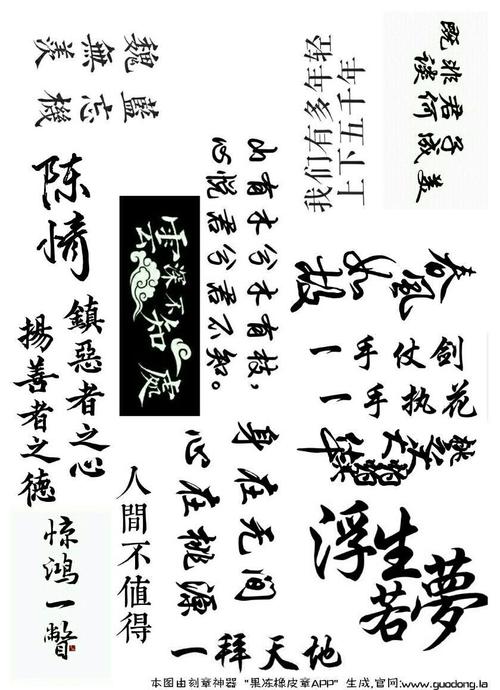 魏無羨
藍忘機
我们有多年轻
上下五千年
既非君子
谈何成美
陈情
雲深不知處
山有木兮木有枝，
心悦君兮君不知。
春風
一手仗剑
一手执花
鎮惡者之心
揚善者之德
身在无间
心在桃源
人間不值得
惊鸿一瞥
浮生
若夢
一拜天地
本图由刻章神器 "果冻橡皮章APP" 生成,官网:www.guodong.la